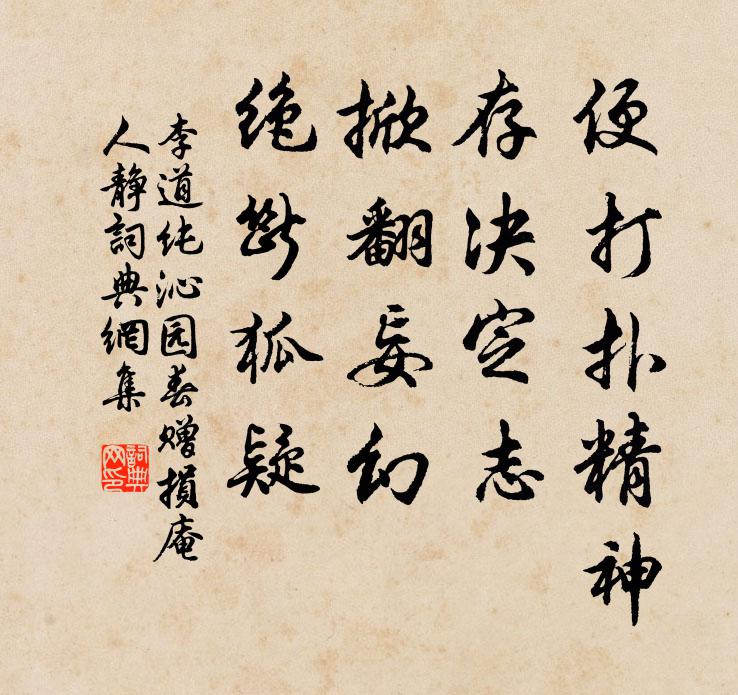 便打扑精神
存决定志
掀翻妄幻
绝断狐疑
李道纯沁园春赠损庵
人静詞典網集
詞典网印